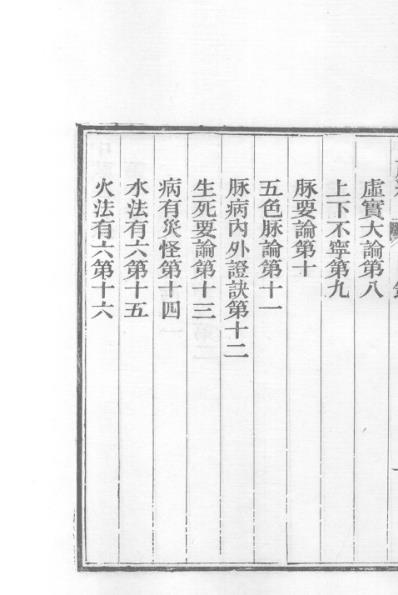 虛實大論第八
上下不寧第九
脉要論第十
五色脉論第十一
脉病內外證訣第十二
生死要論第十三
病有災怪第十四
水法有六第十五
火法有六第十六